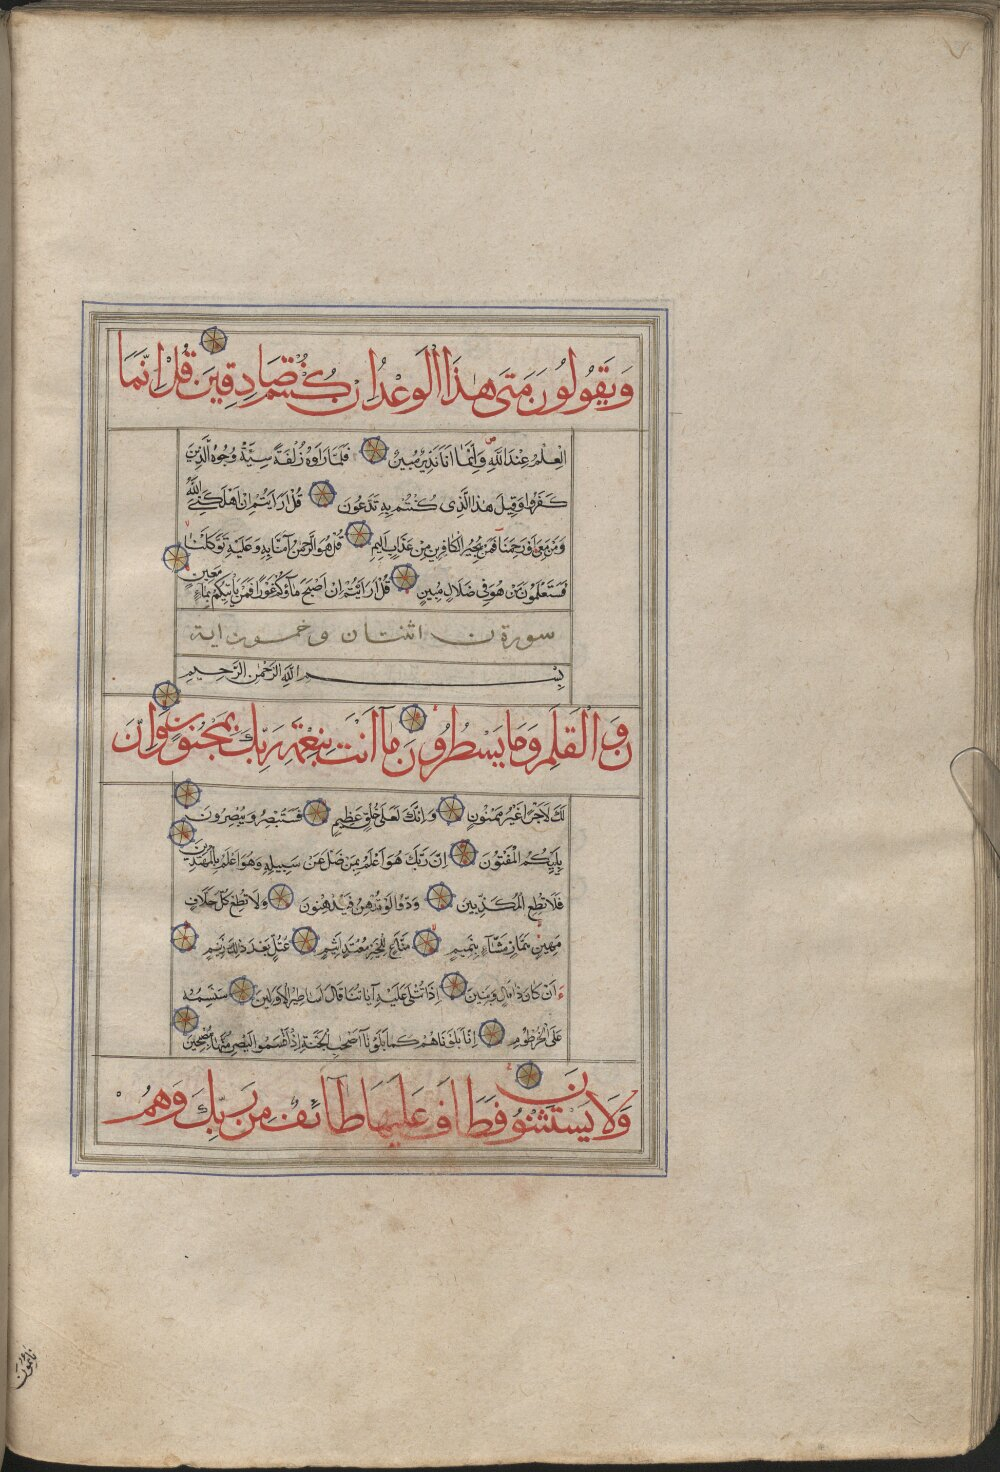 وَيَقُولُونَ مَتَى هٰذَا الْوَعْدُ اِنْ كُنْتُمْ صَادِقِينَ قُلْ اِنَّمَا
الْعِلْمُ عِنْدَ اللّٰهِ وَاِنَّمَا اَنَا نَذِيرٌ مُبِينٌ فَلَمَّا رَاَوْهُ زُلْفَةً سِيئَتْ وُجُوهُ الَّذِينَ
كَفَرُوا وَقِيلَ هٰذَا الَّذِى كُنْتُمْ بِهِ تَدَّعُونَ قُلْ اَرَاَيْتُمْ اِنْ اَهْلَكَنِىَ اللّٰهُ
وَمَنْ مَعِىَ اَوْ رَحِمَنَا فَمَنْ يُجِيرُ الْكَافِرِينَ مِنْ عَذَابٍ اَلِيمٍ قُلْ هُوَ الرَّحْمٰنُ اٰمَنَّا بِهِ وَعَلَيْهِ تَوَكَّلْنَا
فَسَتَعْلَمُونَ مَنْ هُوَ فِى ضَلَالٍ مُبِينٍ قُلْ اَرَاَيْتُمْ اِنْ اَصْبَحَ مَاؤُكُمْ غَوْرًا فَمَنْ يَاْتِيكُمْ بِمَاءٍ مَعِينٍ
سورة ن اثنتان و خمسون اية
بِسْمِ اللّٰهِ الرَّحْمٰنِ الرَّحِيمِ
ن وَالْقَلَمِ وَمَا يَسْطُرُونَ مَا اَنْتَ بِنِعْمَةِ رَبِّكَ بِمَجْنُونٍ وَاِنَّ
لَكَ لَاَجْرًا غَيْرَ مَمْنُونٍ وَاِنَّكَ لَعَلَى خُلُقٍ عَظِيمٍ فَسَتُبْصِرُ وَيُبْصِرُونَ
بِاَيِّكُمُ الْمَفْتُونُ اِنَّ رَبَّكَ هُوَ اَعْلَمُ بِمَنْ ضَلَّ عَنْ سَبِيلِهِ وَهُوَ اَعْلَمُ بِالْمُهْتَدِينَ
فَلَا تُطِعِ الْمُكَذِّبِينَ وَدُّوا لَوْ تُدْهِنُ فَيُدْهِنُونَ وَلَا تُطِعْ كُلَّ حَلَّافٍ
مَهِينٍ هَمَّازٍ مَشَّاءٍ بِنَمِيمٍ مَنَّاعٍ لِلْخَيْرِ مُعْتَدٍ اَثِيمٍ عُتُلٍّ بَعْدَ ذٰلِكَ زَنِيمٍ
اَنْ كَانَ ذَا مَالٍ وَبَنِينَ اِذَا تُتْلَى عَلَيْهِ اٰيَاتُنَا قَالَ اَسَاطِيرُ الْاَوَّلِينَ سَنَسِمُهُ
عَلَى الْخُرْطُومِ اِنَّا بَلَوْنَاهُمْ كَمَا بَلَوْنَا اَصْحَابَ الْجَنَّةِ اِذْ اَقْسَمُوا لَيَصْرِمُنَّهَا مُصْبِحِينَ
وَلَا يَسْتَثْنُونَ فَطَافَ عَلَيْهَا طَائِفٌ مِنْ رَبِّكَ وَهُمْ
نَائِمُونَ